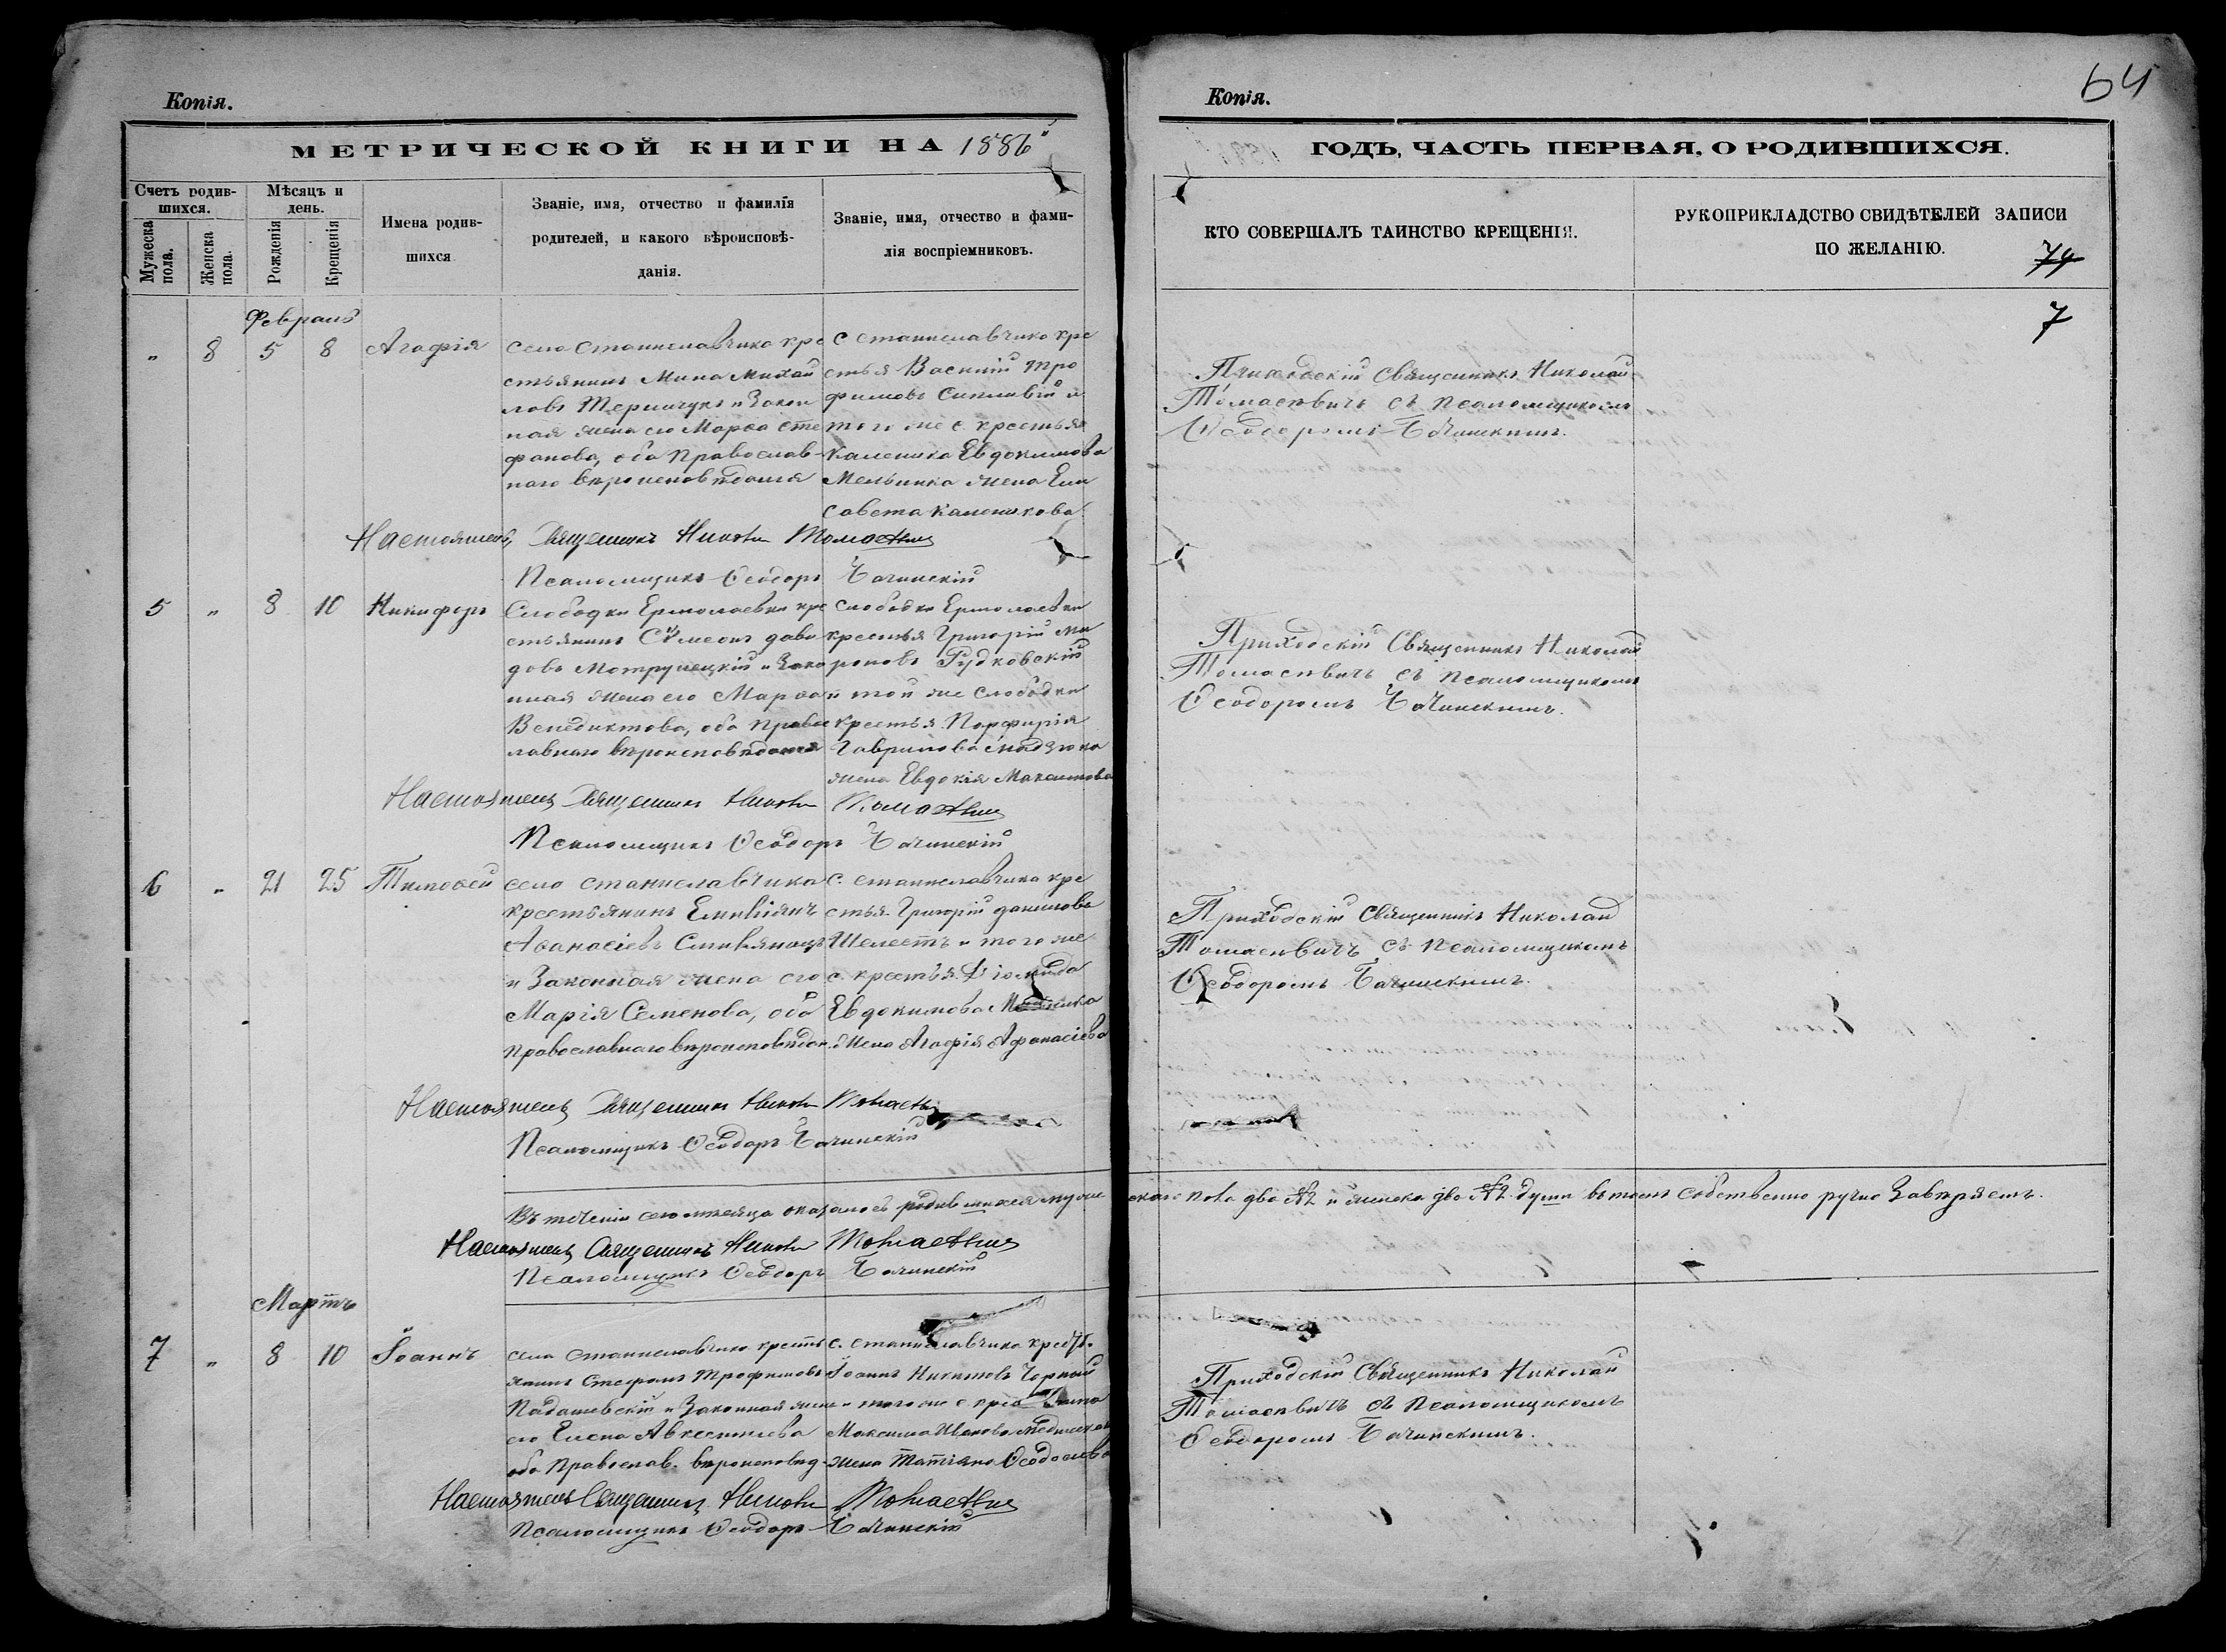 Копія.
МЕТРИЧЕСКОЙ КНИГИ НА 1886
Счетъ родив-
шихся.
Мѣсяцъ и
день.
Мужеска
пола.
Женска
пола.
Рожденія
Крещенія
Имена родив-
шихся
Званіе, имя, отчество и фамилія
родителей, и какого вѣроисповѣ-
данія.
Званіе, имя, отчество и фами-
лія воспріемниковъ.
Февраль
" 8 5 8 Агафія
село Станиславчика кре
стьянинъ Мина Михай
ловъ и закон
ная жена его Марѳа Сте
фанова, оба православ-
наго вѣроисповѣданія
с Станиславчика кре
стья Василій Тро
фимовъ и
того же с. крестьян
Каленика Евдокимова
Мельника жена Ели
савета Каленикова
Настоятель, Священникъ Николай Томасевич
Псаломщикъ Ѳеодоръ Бачинскій
5 " 8 10 Никифоръ
Слободки Ермолаевки кре
стьянинъ Сѵмеонъ Дави
довъ и зако
нная жена его Марѳа
Венедиктова, оба правос
лавнаго вѣроисповѣданія
Слободки Ермолаевки
крестья Григорій Ми
роновъ Рудковскій
и той же Слободки
крестья. Порфирія
Гаврилова
жена Евдокія Максимова
Настоятель Священникъ Николай Томасевич
Псаломщикъ Ѳеодоръ Бачинскій
6 " 21 25 Тимоѳей
село Станиславчика
крестьянинъ Емиліянъ
Аѳанасіевъ
и законная жена его
Марія Семенова, оба
православнаго вѣроисповѣдан.
с. Станиславчика кре
стья. Григорій Данилова
Шелестъ и того же
с. крестья.
Евдокимова Мельника
жена Агафія Афанасіева
Настоятель Священникъ Николай Томасевич
Псаломщикъ Ѳеодоръ Бачинскій
Въ теченіи сего мѣсяца оказалось родившихся муже
Настоятель Священникъ Николай Томасевич
Псаломщикъ Ѳеодоръ Бачинскій
Мартъ
7 " 8 10 Іоаннъ
села Станиславчика кресть
янинъ Стефанъ Трофимовъ
и законная жена
его Елена Авксентиева
оба православ. вѣроисповѣд.
с. Станиславчика крестья.
Іоаннъ Никитовъ Чорный
и того же с. крес
Максима Иванова
жена Татіана Ѳеодосіева
Настоятель Священникъ Николай Томасевич
Псаломщикъ Ѳеодоръ Бачинскій
Копія.
64
ГОДЪ, ЧАСТЬ ПЕРВАЯ, О РОДИВШИХСЯ.
КТО СОВЕРШАЛЪ ТАИНСТВО КРЕЩЕНІЯ.
РУКОПРИКЛАДСТВО СВИДѢТЕЛЕЙ ЗАПИСИ
ПО ЖЕЛАНІЮ.
79
7
Приходскій Священникъ Николай
Томасевичъ съ псаломщикомъ
Ѳеодоромъ Бачинскимъ.
Приходскій Священникъ Николай
Томасевичъ съ псаломщикомъ
Ѳеодоромъ Бачинскимъ.
Приходскій Священникъ Николай
Томасевичъ съ псаломщикомъ
Ѳеодоромъ Бачинскимъ.
скаго пола два №2 и женска два №2 души въ томъ собственно ручно завѣряемъ.
Приходскій Священникъ Николай
Томасевичъ съ псаломщикомъ
Ѳеодоромъ Бачинскимъ.